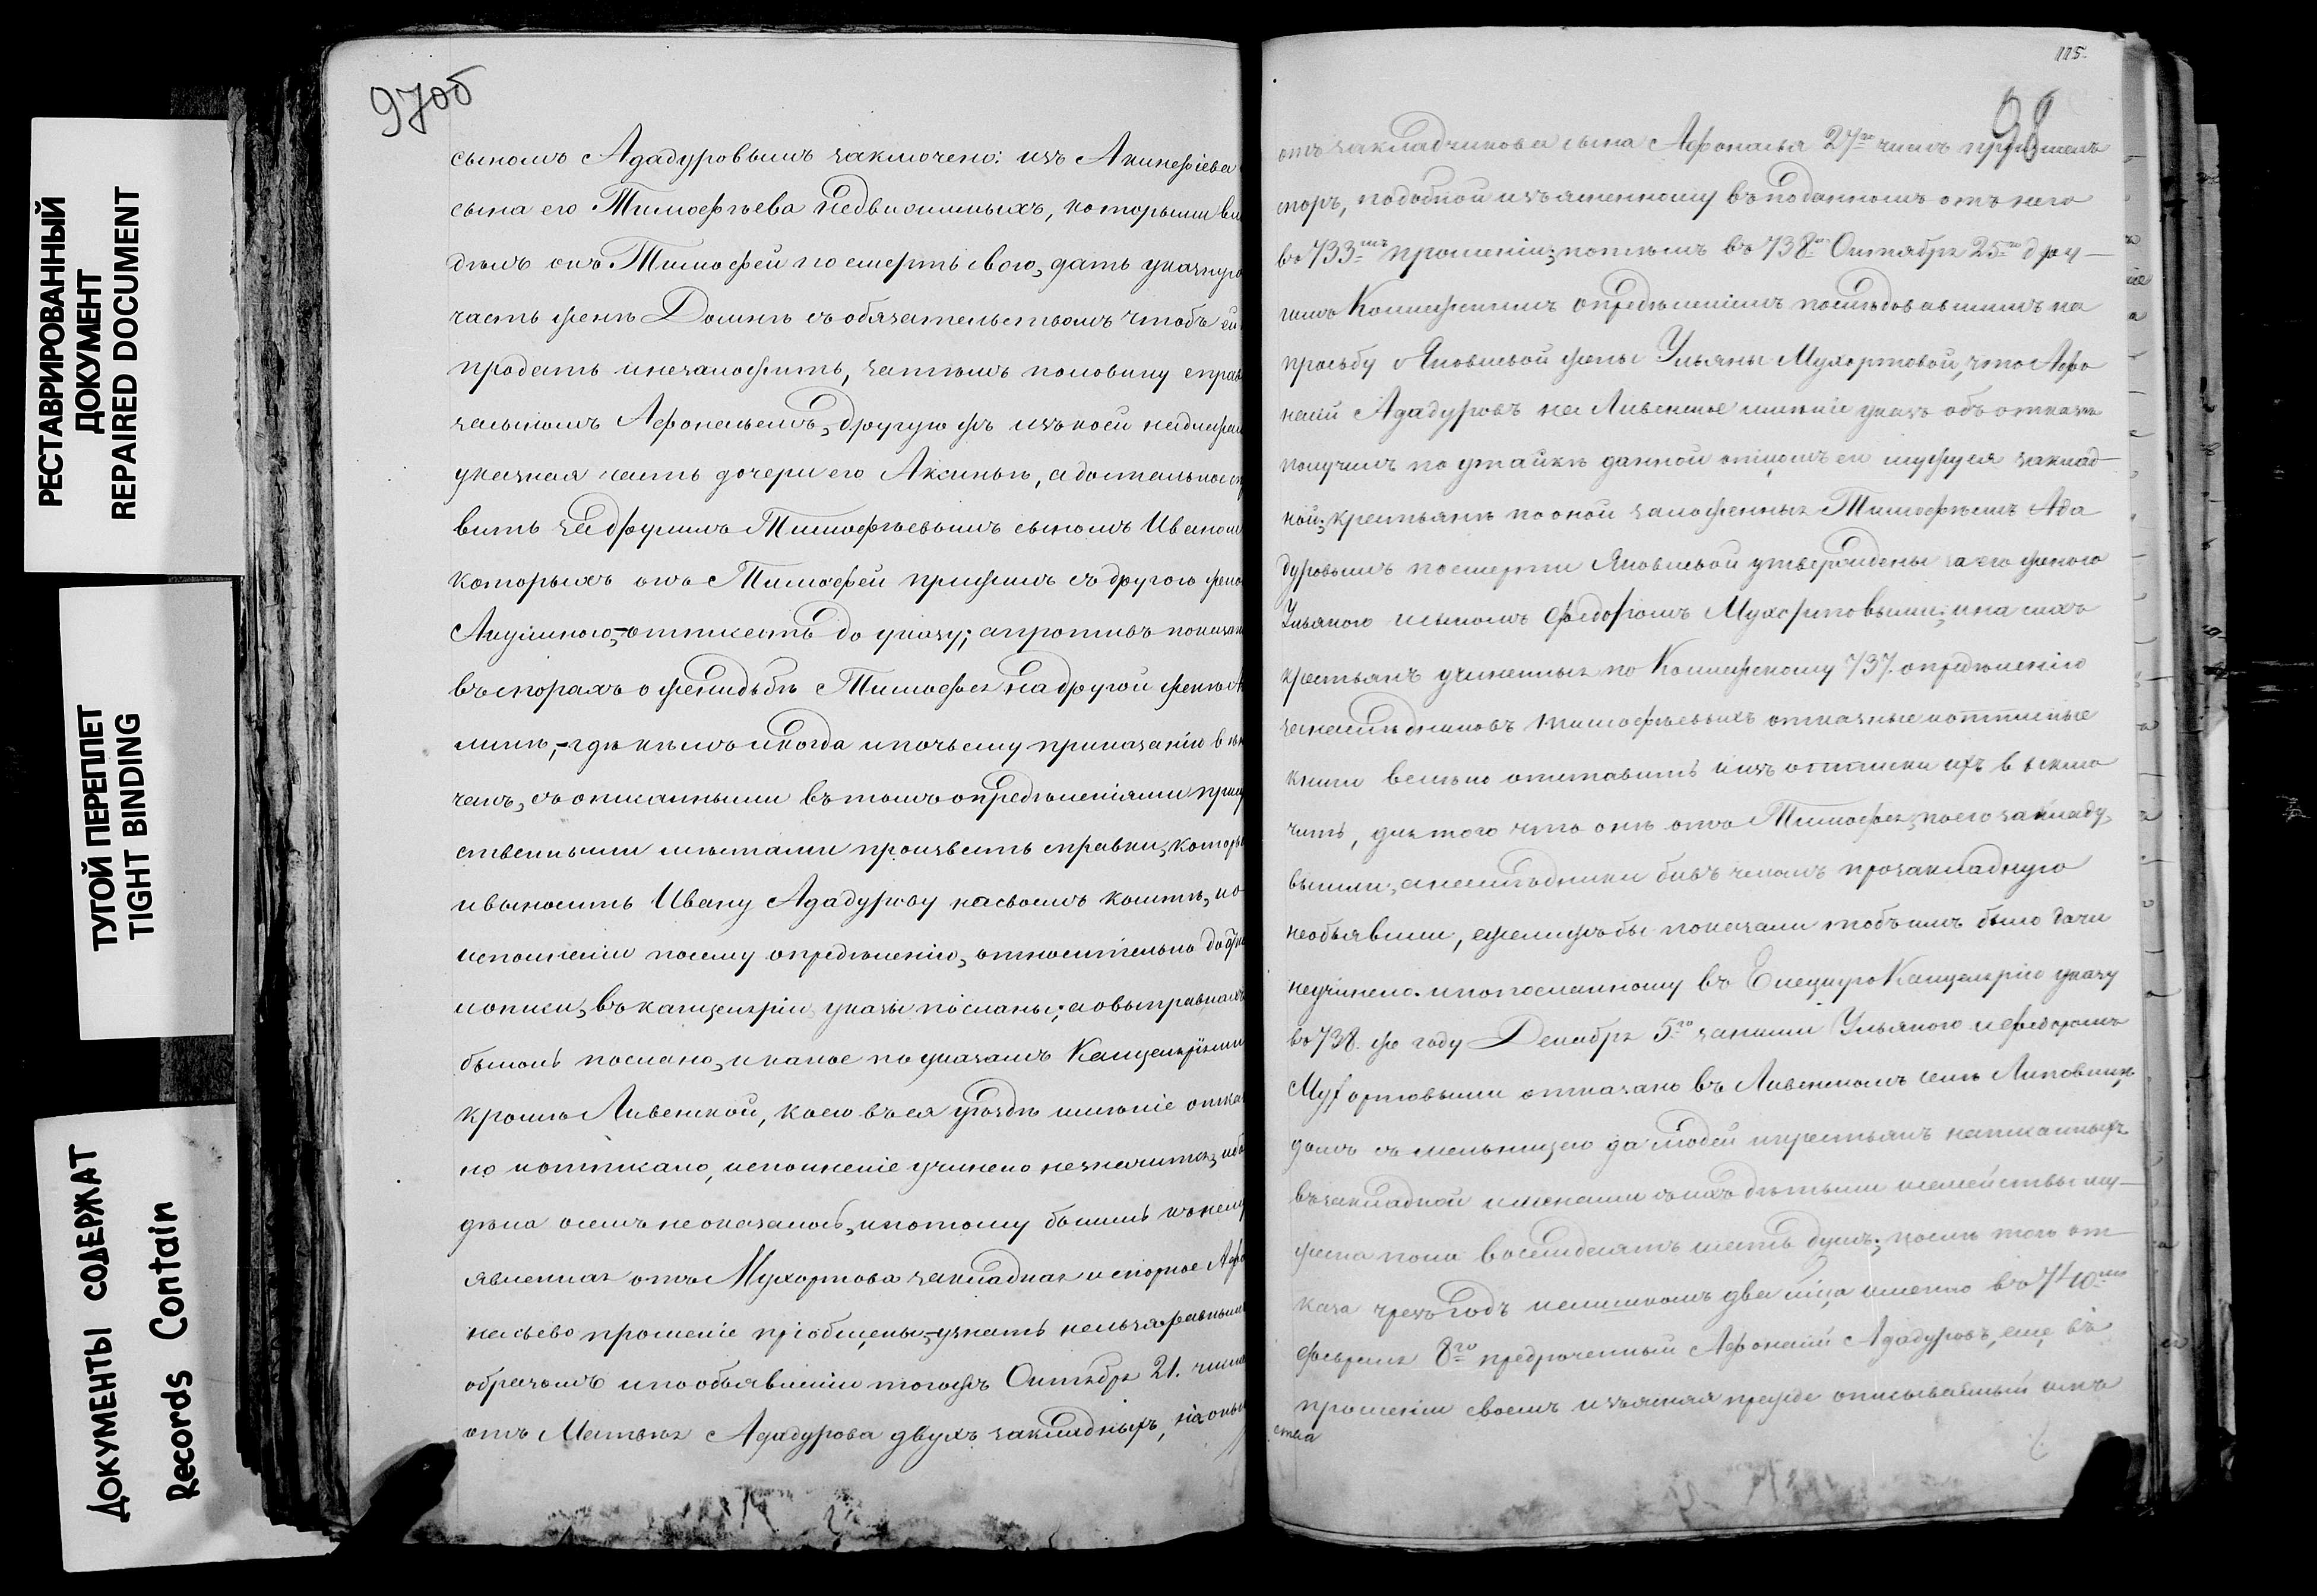 РЕСТАВРИРОВАННЫЙ
ДОКУМЕНТ
REPAIRED DOCUMENT
ТУГОЙ ПЕРЕПЛЕТ
TIGHT BINDING
ДОКУМЕНТЫ СОДЕРЖАТ
Records Contain
97об
сыномъ Ададуровымъ заключено: изъ Акинфіева
сына его Тимофѣева недвижимыхъ, которыми вла
дѣлъ онъ Тимофей по смерть свою, дать указную
часть женѣ Домнѣ съ обязательствомъ чтобъ ей
продать и незаложить, затѣмъ половину справ
сыномъ Афонасьемъ, другую жъ изъ коей надлежа
указная часть дочери его Аксиньѣ, а достальное
вить за другимъ Тимофѣевымъ сыномъ Иваном
которыхъ онъ Тимофей прижилъ съ другою жено
Акулиною, отписать до указу; а противъ показан
въ спорахъ о женидьбѣ Тимофея на другой женѣ
линѣ, гдѣ кѣмъ и когда и почьему приказанію вѣн
чанъ, съ описанными въ томъ опредѣленіями прису
ственными мѣстами произвесть справки, которы
и выносить Ивану Ададурову на своемъ коштѣ, и о
исполненіи по сему опредѣленію, относительно до
и описи, въ канцеляріи указы посланы; а о выправкахъ
былоль послано, и какое по указамъ Канцеляріями
кромѣ Ливенской, коею въ ея уѣздѣ имѣніе отка
но и отписано, исполненіе учинено незначится, ибо
дѣла о семъ не оказалось, и потому былиль къ нему
явленная отъ Мухортова закладная и спорное Афо
насьево прошеніе пріобщены, узнать нельзя равнымъ
образомъ и по объявленіи тогожъ Октября 21. числа
отъ Матвѣя Ададурова двухъ закладныхъ, на оныя
115.
98
отъ закладчикова сына Афонасья 27го числъ
споръ, подобной изъясненному въ поданномъ отъ него
въ 733мъ прошеніи; потомъ въ 738м Октября 25го дру—
гимъ Коллежскимъ опредѣленіемъ послѣдовавшимъ на
просьбу Яковлевой жены Ульяны Мухортовой, что Афо
насій Ададуровъ на Ливенское имѣніе указъ объ отказѣ
получилъ по утайкѣ данной отцомъ ея мужуея заклад—
ной; крестьянъ по оной заложенныхъ Тимофѣемъ Ада
дуровымъ по смерти Яковлевой утверждены за его женою
Ульяною и сыномъ Федоромъ Мухортовыми; и на сихъ
крестьянъ учиненныя по Коллежскому 737. опредѣленію
за наслѣдниковъ Тимофѣевыхъ отказные и отписные
книги велѣно отставить и изъ отписки ихъ выклю
чить, для того что онѣ отъ Тимофея, по его закладу,
вышли; а наслѣдники бивъ челомъ про закладную
необъявили, ежелижъ бы показали тобъ имъ было дачи
неучинено. и по посланному въ Елецкую Канцелярію указу
въ 738. же году Декабря 5го за ними Ульяною и Федоромъ
Мухортовыми отказано въ Ливенскомъ селѣ Липовицѣ
домъ съ мельницею да людей и крестьянъ написанныхъ
въ закладной имянами съ ихъ дѣтьми и семействы му—
жеска пола восемдесятъ шесть душъ; послѣ того от
каза чрезъ годъ и слишкомъ два мѣсяца имянно въ 740мъ
февраля 8го предреченный Афонасій Ададуровъ, еще въ
прошеніи своемъ изъясняя прежде описыванный имъ